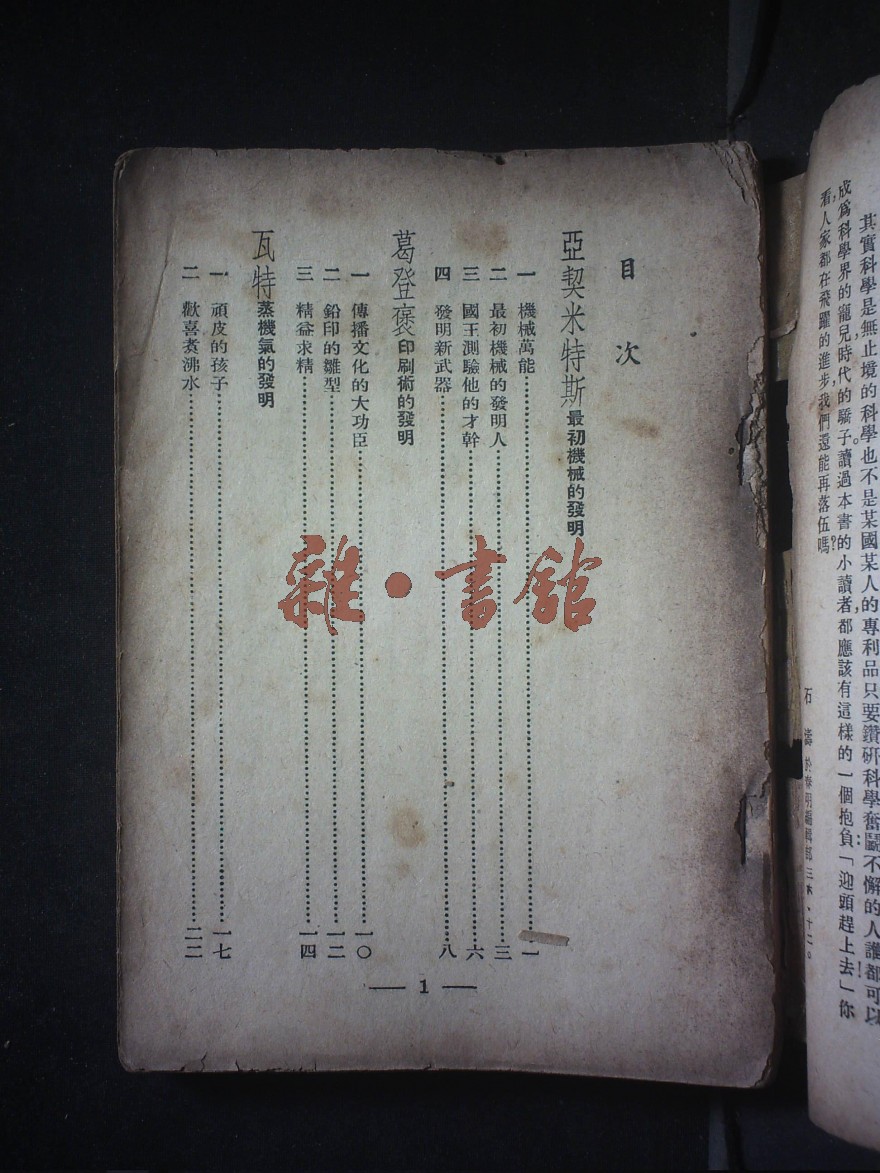 其實科學是無止境的科學也不是某國某人的專利品只要鑽研科學奮鬭不懈的人誰都可以
成爲科學界的寵兒時代的驕子。讀過本書的小讀者都應該有這樣的一個抱負「迎頭趕上去」!你
看人家都在飛躍的進步我們還能再落伍嗎?
石 濤 於春明編輯部 三六·十二。
目 次
亞契米特斯 最初機械的發明
一 機械萬能……一
二 最初機械的發明人……三
三 國王測驗他的才幹……六
四 發明新武器……八
葛登褒 印刷術的發明
一 傳播文化的大功臣……一〇
二 鉛印的雛型……一二
三 精益求精……一四
瓦特 蒸機氣的發明
一 頑皮的孩子……一七
二 歡喜煑沸水……二二
— 1 —
雜·書館